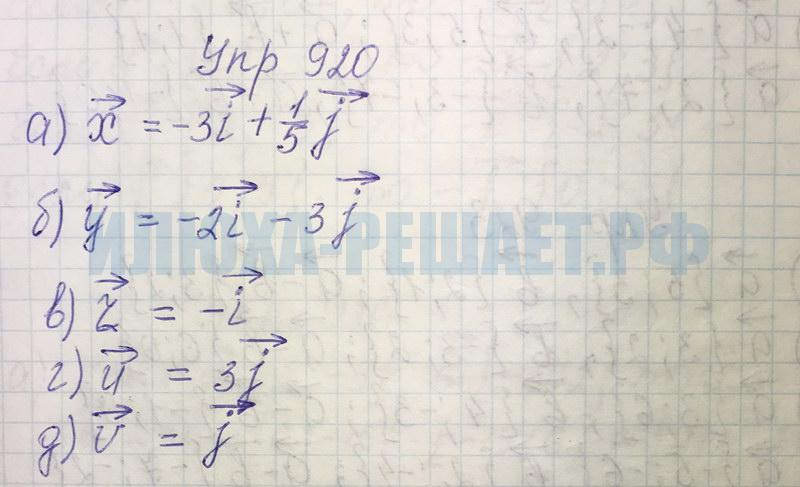 Упр 920
а) x⃗ = -3i⃗ + 1/5 j⃗
б) y⃗ = -2i⃗ - 3j⃗
ИЛЮХА-РЕШАЕТ.РФ
в) z⃗ = -i⃗
г) u⃗ = 3j⃗
д) v⃗ = j⃗